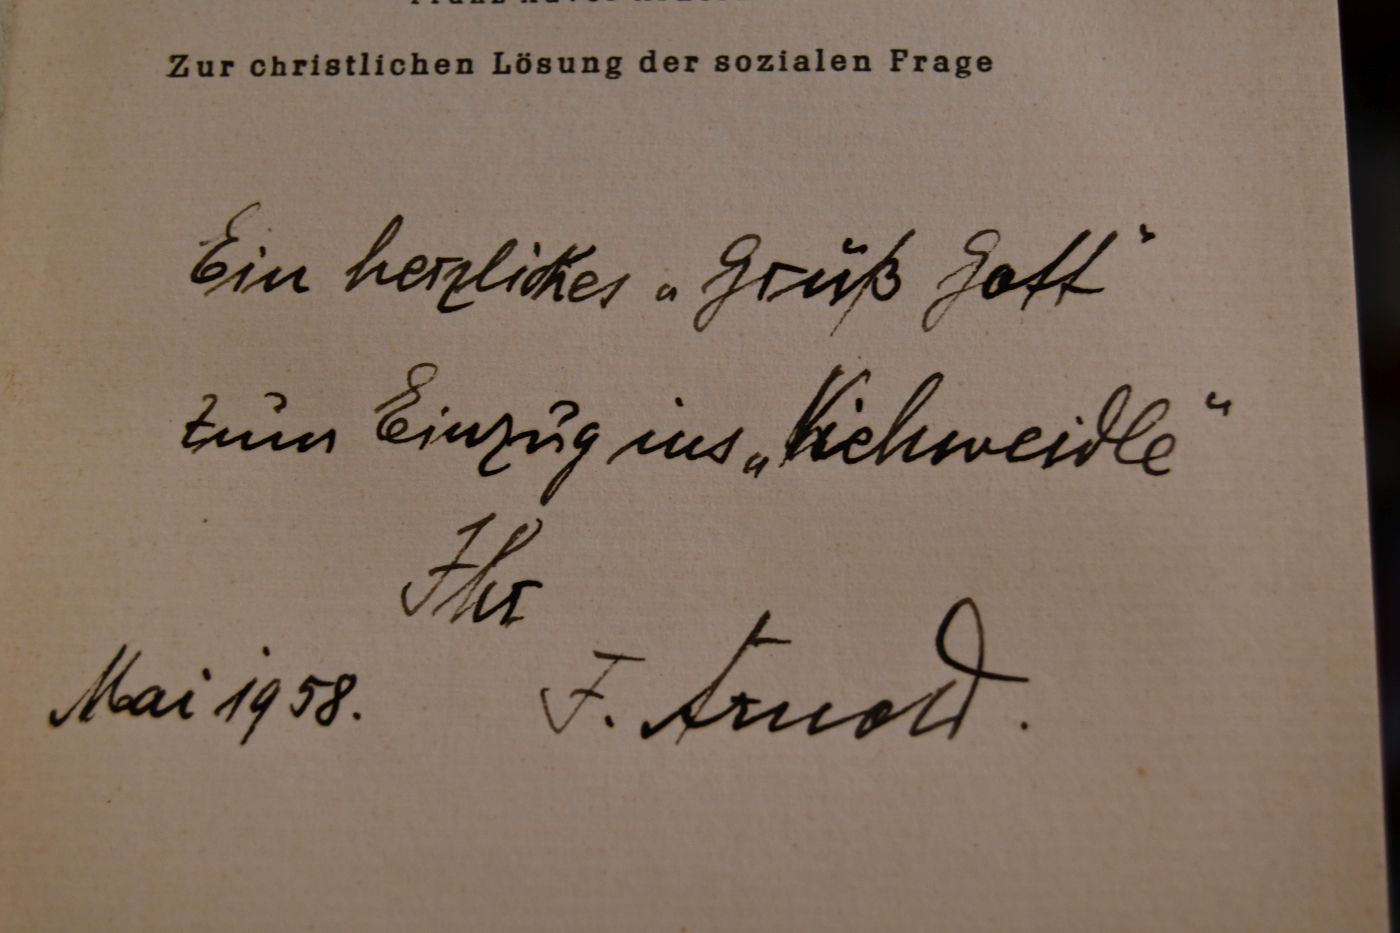 Franz Xaver
Zur christlichen Lösung der sozialen Frage
Ein herzliches „Grüß Gott“
zum Einzug ins „Viehweidle“
Ihr
Mai 1958. F. Arnold.